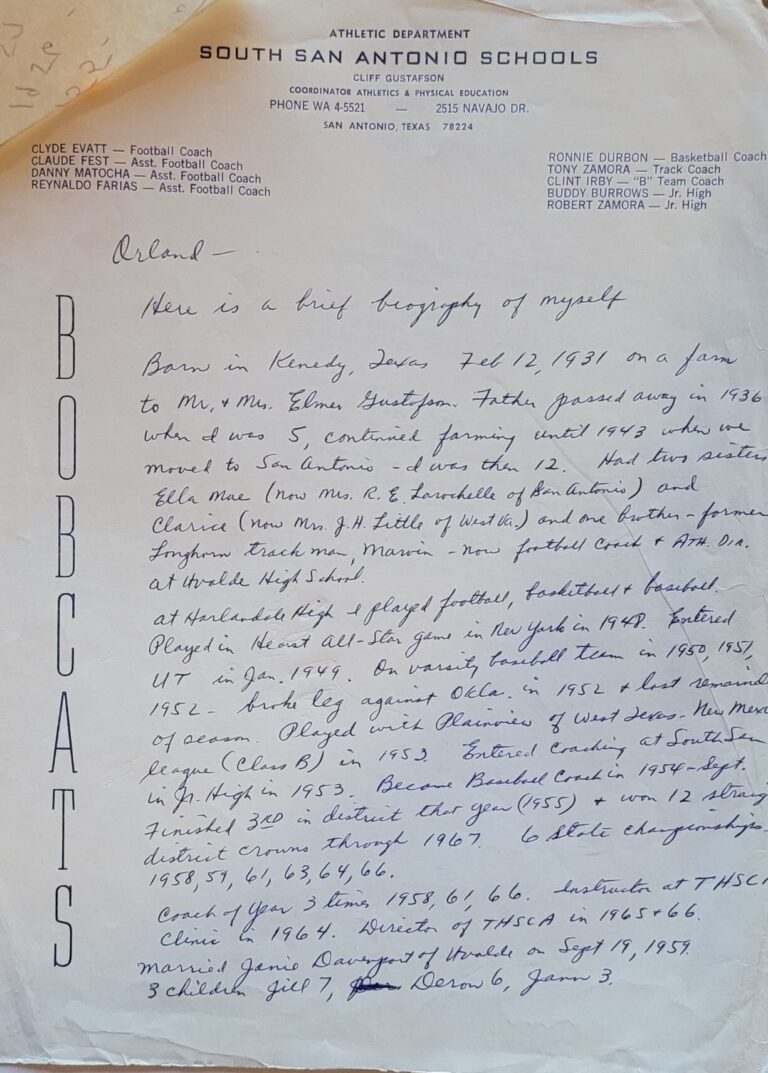 ATHLETIC DEPARTMENT
SOUTH SAN ANTONIO SCHOOLS
CLIFF GUSTAFSON
COORDINATOR ATHLETICS & PHYSICAL EDUCATION
PHONE WA 4-5521 — 2515 NAVAJO DR.
SAN ANTONIO, TEXAS 78224
CLYDE EVATT — Football Coach
CLAUDE FEST — Asst. Football Coach
DANNY MATOCHA — Asst. Football Coach
REYNALDO FARIAS — Asst. Football Coach
RONNIE DURBON — Basketball Coach
TONY ZAMORA — Track Coach
CLINT IRBY — "B" Team Coach
BUDDY BURROWS — Jr. High
ROBERT ZAMORA — Jr. High
BOBCATS
Orland —
Here is a brief biography of myself
Born in Kenedy, Texas Feb 12, 1931 on a farm
to Mr. & Mrs. Elmer Gustafson. Father passed away in 1936
when I was 5, continued farming until 1943 when we
moved to San Antonio - I was then 12. Had two sisters
Ella Mae (now Mrs. R. E. Larochelle of San Antonio) and
Clarice (now Mrs. J. H. Little of West Va.) and one brother - former
Longhorn track man, Marvin - now football coach & Ath. Dir.
at Uvalde High School.
at Harlandale High I played football, basketball & baseball.
Played in Hearst All-Star game in New York in 1948. Entered
UT in Jan. 1949. On varsity baseball team in 1950, 1951,
1952 - broke leg against Okla. in 1952 & lost remaind
of season. Played with Plainview of West Texas - New Mexc
league (Class B) in 1952. Entered Coaching at South San
in Jr. High in 1953. Became Baseball Coach in 1954 - Sept.
Finished 3RD in district that year (1955) & won 12 straig
district crowns through 1967. 6 State championships -
1958, 59, 61, 63, 64, 66.
Coach of Year 3 times 1958, 61, 66. Instructor at THSCA
Clinic in 1964. Director of THSCA in 1965 & 66.
Married Janie Davenport of Uvalde on Sept 19, 1959.
3 children Jill 7, Deron 6, Jann 3.